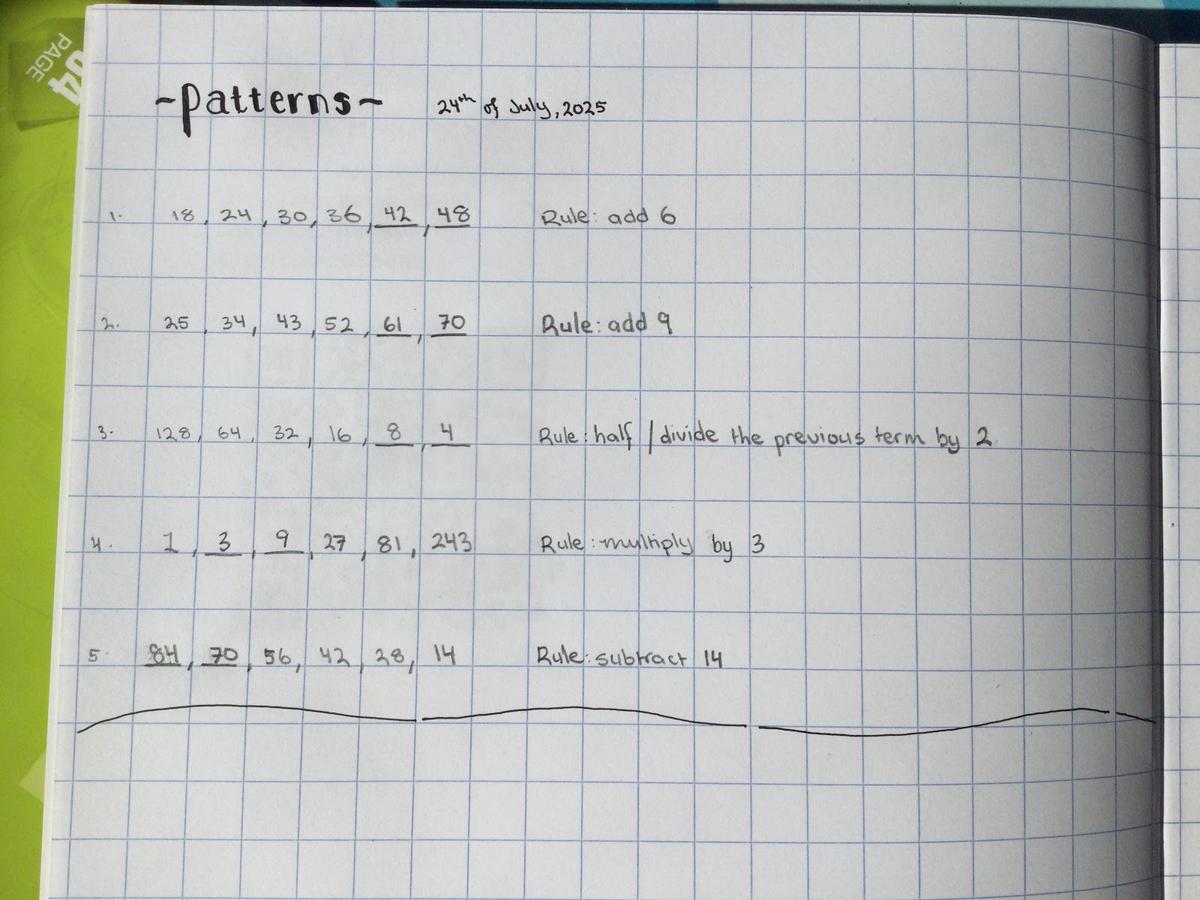 PAGE 94
~patterns~ 24th of July, 2025
1. 18, 24, 30, 36, 42, 48 Rule: add 6
2. 25, 34, 43, 52, 61, 70 Rule: add 9
3. 128, 64, 32, 16, 8, 4 Rule: half / divide the previous term by 2.
4. 1, 3, 9, 27, 81, 243 Rule: multiply by 3
5. 84, 70, 56, 42, 28, 14 Rule: subtract 14